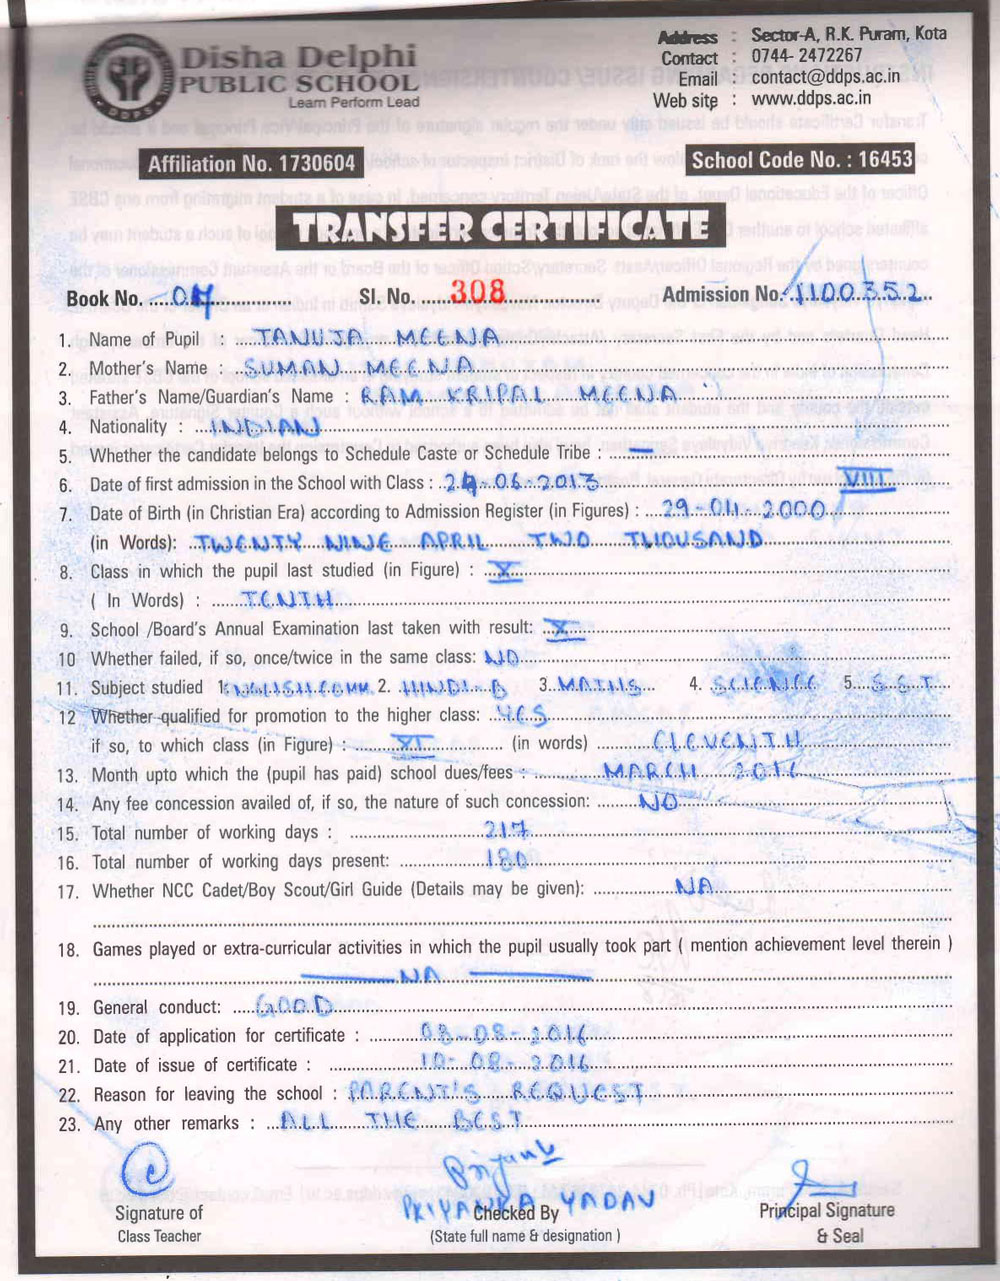 Disha Delphi
PUBLIC SCHOOL
Learn Perform Lead
DDPS
Address : Sector-A, R.K. Puram, Kota
Contact : 0744-2472267
Email : contact@ddps.ac.in
Web site : www.ddps.ac.in
Affiliation No. 1730604
School Code No. : 16453
TRANSFER CERTIFICATE
Book No. 04 Sl. No. 308 Admission No. 1100352
1. Name of Pupil : TANUJA MEENA
2. Mother's Name : SUMAN MEENA
3. Father's Name/Guardian's Name : RAM KRIPAL MEENA
4. Nationality : INDIAN
5. Whether the candidate belongs to Schedule Caste or Schedule Tribe : —
6. Date of first admission in the School with Class : 24-06-2013 VIII
7. Date of Birth (in Christian Era) according to Admission Register (in Figures) : 29-04-2000
(in Words): TWENTY NINE APRIL TWO THOUSAND
8. Class in which the pupil last studied (in Figure) : X
( In Words) : TENTH
9. School /Board's Annual Examination last taken with result: X
10 Whether failed, if so, once/twice in the same class: NO
11. Subject studied 1. ENGLISH COMM. 2. HINDI B 3. MATHS 4. SCIENCE 5. S.S.T
12 Whether qualified for promotion to the higher class: YES
if so, to which class (in Figure) : XI (in words) ELEVENTH
13. Month upto which the (pupil has paid) school dues/fees : MARCH 2016
14. Any fee concession availed of, if so, the nature of such concession: NO
15. Total number of working days : 217
16. Total number of working days present: 180
17. Whether NCC Cadet/Boy Scout/Girl Guide (Details may be given): NA
18. Games played or extra-curricular activities in which the pupil usually took part ( mention achievement level therein )
NA
19. General conduct: GOOD
20. Date of application for certificate : 08-08-2016
21. Date of issue of certificate : 10-08-2016
22. Reason for leaving the school : PARENT'S REQUEST
23. Any other remarks : ALL THE BEST
Priyanka
PRIYANKA YADAV
Signature of Checked By Principal Signature
Class Teacher (State full name & designation ) & Seal